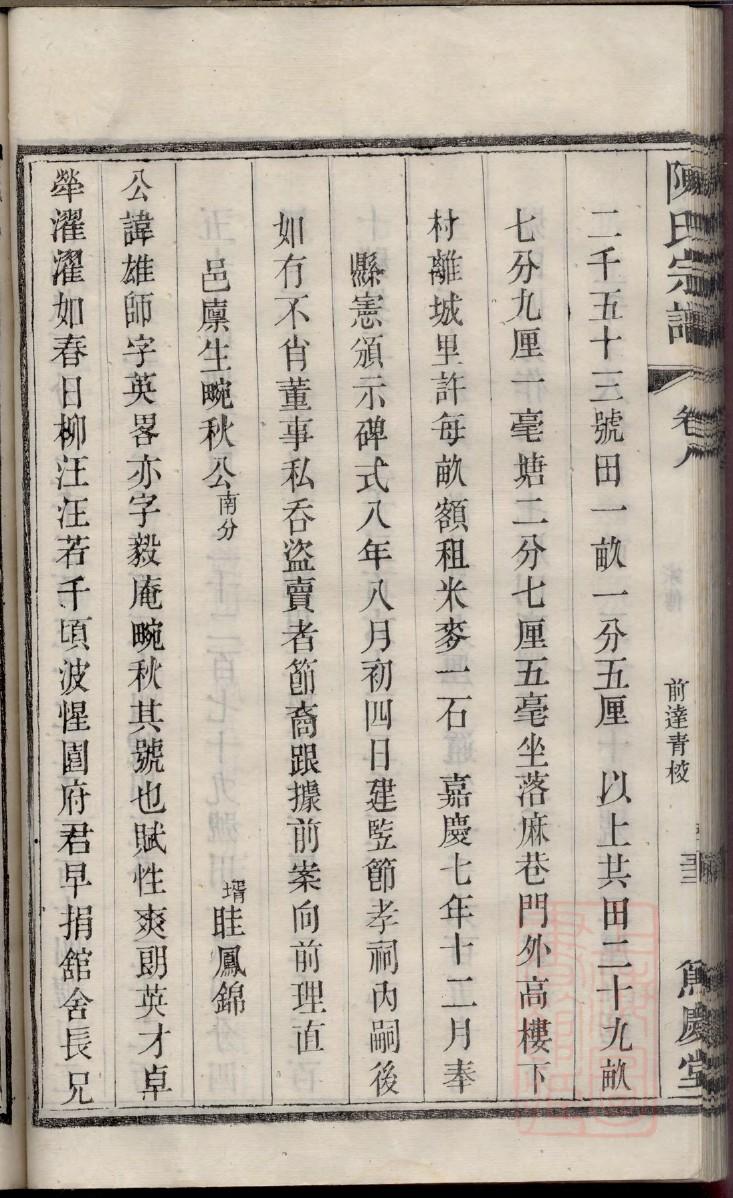 陳氏宗譜 卷八 前達青校 篤慶堂
二千五十三號田一畝一分五厘 以上共田二十九畝
七分九厘一毫塘二分七厘五毫坐落麻巷門外高樓下
村離城里許每畝額租米麥一石 嘉慶七年十二月奉
縣憲頒示碑式八年八月初四日建竪節孝祠內嗣後
如有不肖董事私吞盜賣者節裔跟據前案向前理直
邑廩生畹秋公南分 壻眭鳳錦
公諱雄師字英畧亦字毅庵畹秋其號也賦性爽朗英才卓
犖濯濯如春日柳汪汪若千頃波惺園府君早捐舘舍長兄